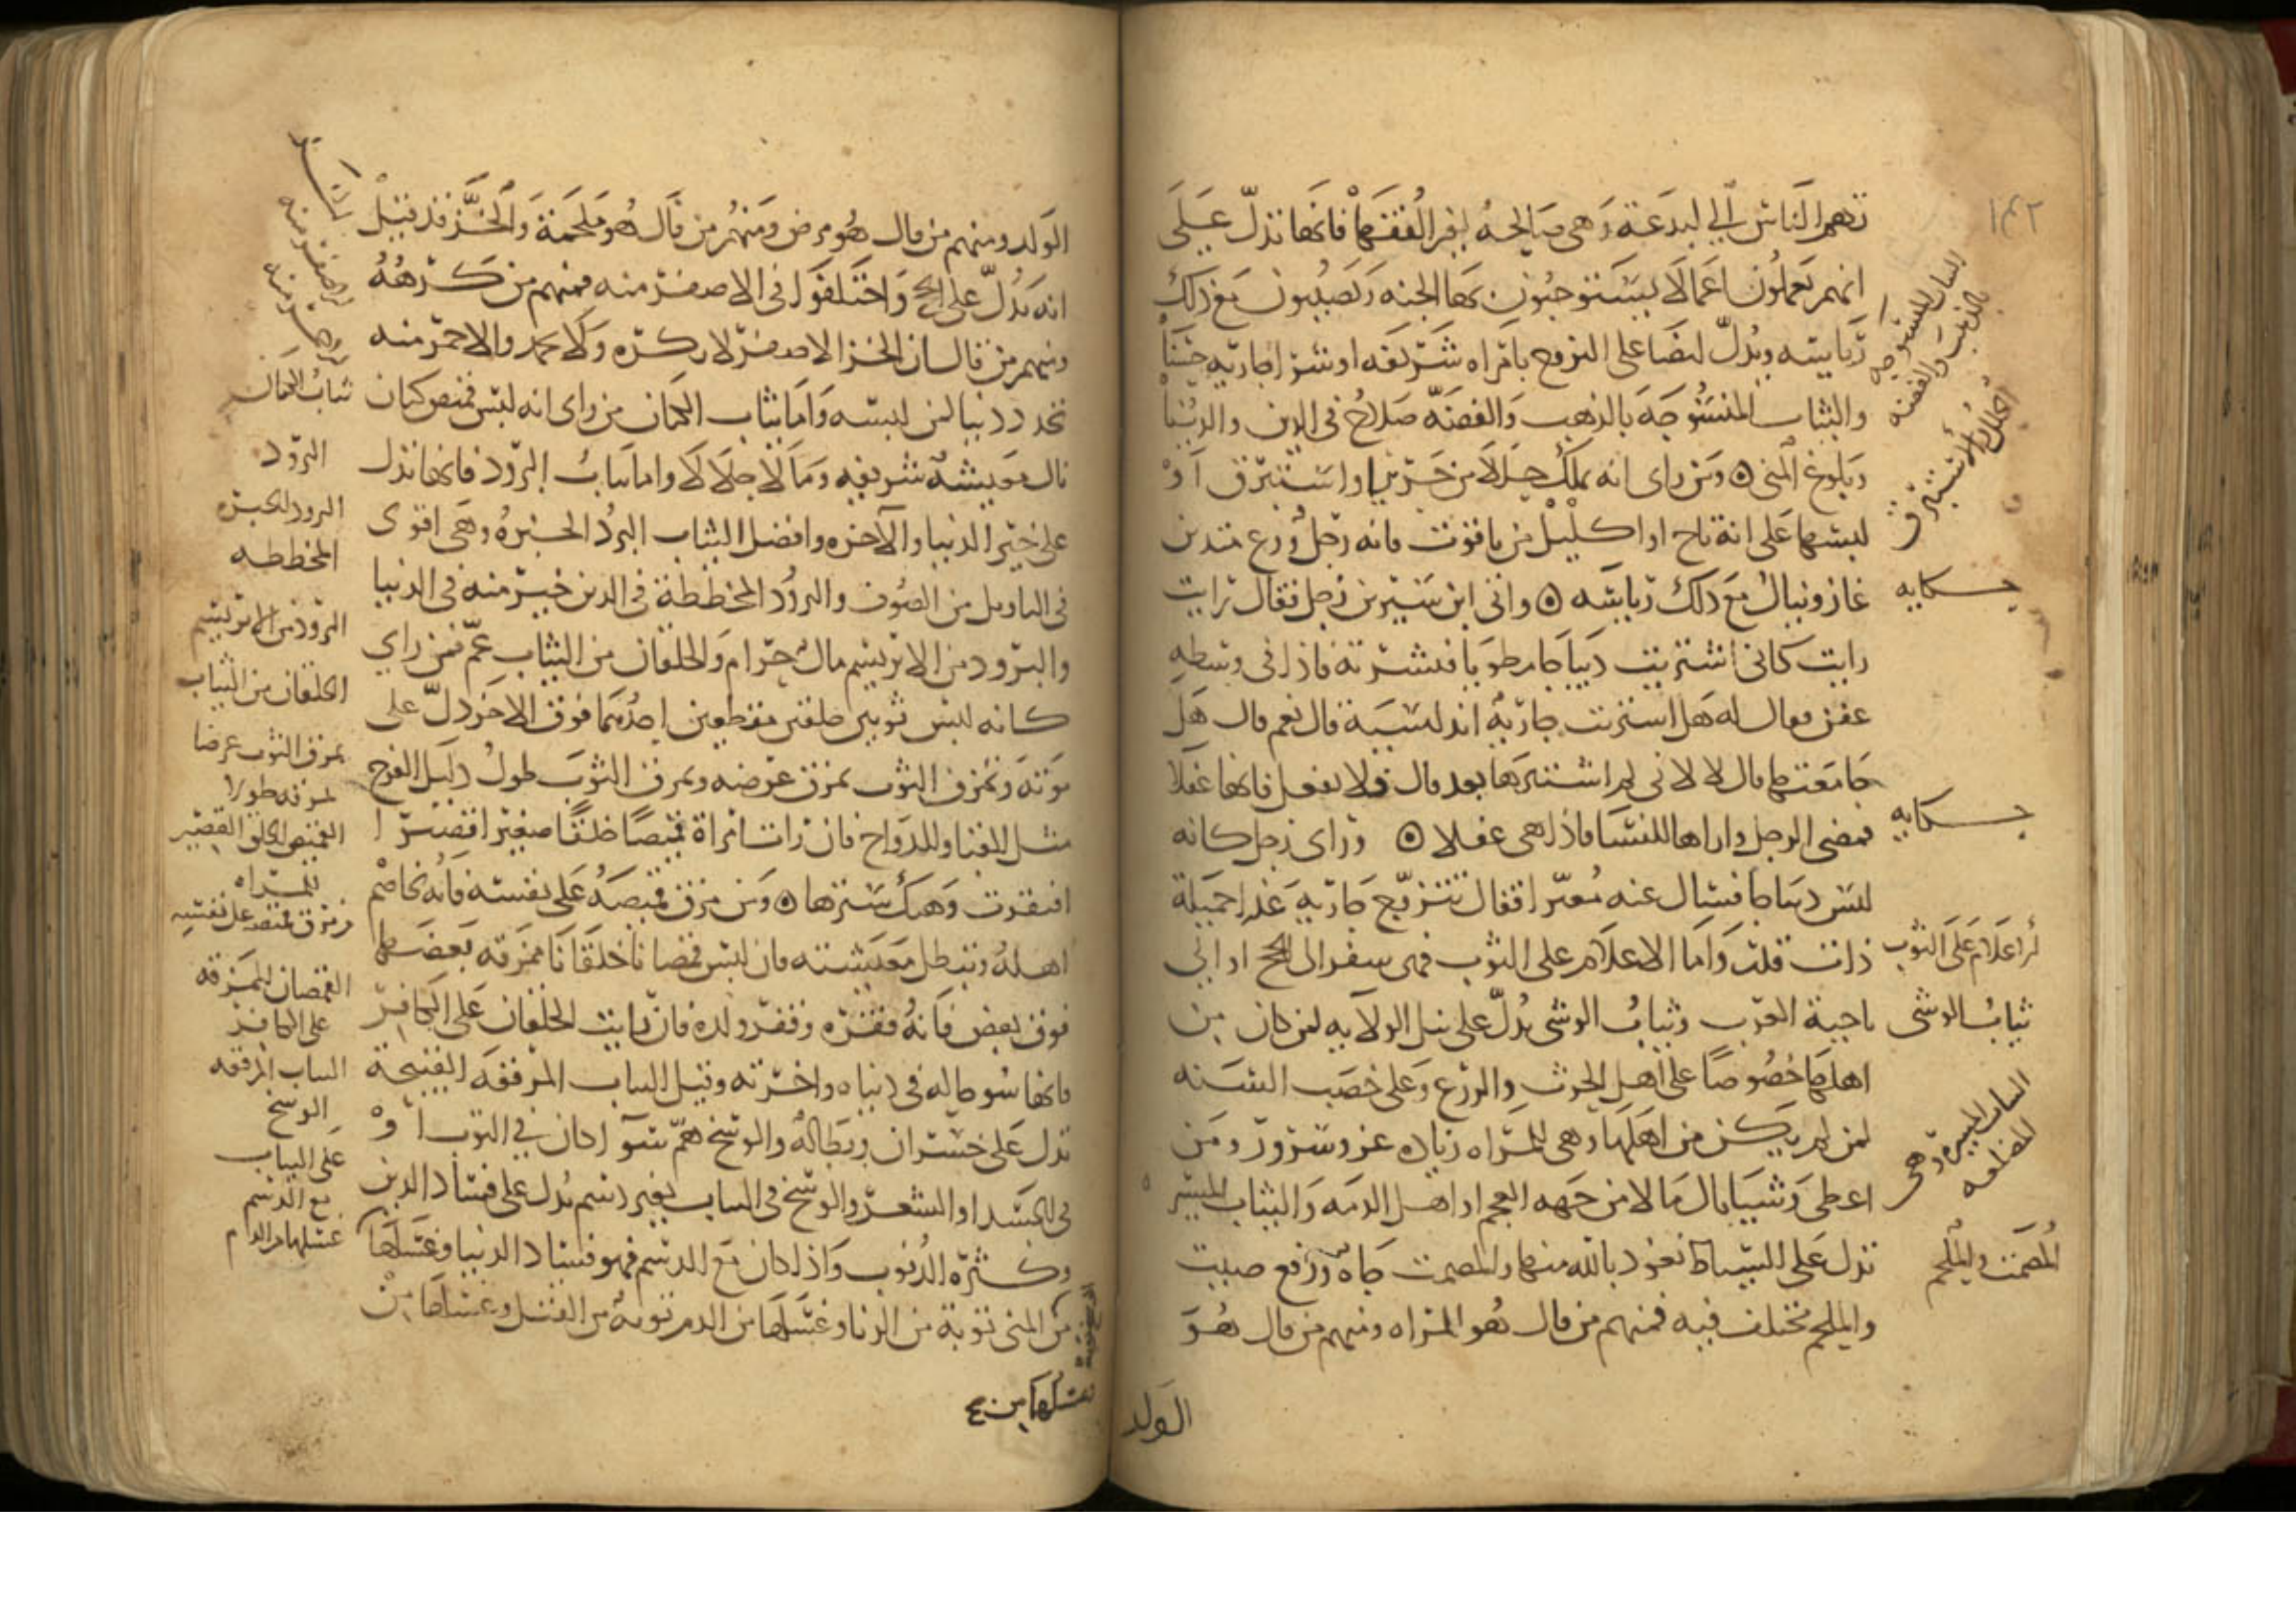 ١٤٢
تدعو الناس الى البدعة وهى صالحة لغير الفقهاء فانها تدل على
انهم يعملون اعمالا يستوجبون بها الجنه ويصيبون مع ذلك
رياسه ويدل ايضا على التزوج بامراه شريفه او شرا جاريه حسنا
والثياب المنسوجه بالذهب والفضه صلاح فى الدين والدنيا
وبلوغ المنى ۞ ومن راى انه يملك حللا من حرير او استبرق او
لبسها على انه تاج او اكليل من ياقوت فانه رجل ورع متدين
غاز وينال مع ذلك رياسه ۞ واتى ابن سيرين رجل فقال رايت
رايت كانى اشتريت ديباجا مطويا فنشرته فاذا فى وسطه
عفن فقال له هل اشتريت جارية اندلسية قال نعم قال هل
جامعتها قال لا لانى لم استبرها بعد قال فلا تفعل فانها عفلا
فمضى الرجل واراها للنسا فاذا هى عفلا ۞ وراى رجل كانه
لبس ديباجا فسال عنه معبرا فقال تتزوج جارية عذرا جميلة
ذات قدر واما الاعلام على الثوب فهى سفر الى الحج او الى
ناحية الغرب وثياب الوشى يدل على نيل الولايه لمن كان من
اهلها خصوصا على اهل الحرث والزرع وعلى خصب السنه
لمن لم يكن من اهلها وهى للمراه زياده عز وسرور ومن
اعطى وشيا نال مالا من جهه العجم او اهل الذمه والثياب المسير
تدل على السياط نعوذ بالله منها والمصمت جاه ورفع صيت
والملحم مختلف فيه فمنهم من قال هو المراه ومنهم من قال هو
الولد
الثياب المنسوجه
بالذهب والفضه
الحلل والاستبرق
حكايه
حكايه
الاعلام على الثوب
ثياب الوشى
الثياب المسيره وهى
المضلعه
المصمت والملحم
الولد ومنهم من قال هو مرض ومنهم من قال هو ملحمة والخز قد قيل
انه يدل على الحج واختلفوا فى الاصفر منه فمنهم من كرهه
ومنهم من قال ان الخز الاصفر لا يكره ولا يحمد والاحمر منه
تجدد دنيا لمن لبسه واما ثياب الكتان من راى انه لبس قميص كتان
نال معيشة شريفه ومالا حلالا واما ثياب البرود فانها تدل
على خير الدنيا والآخره وافضل الثياب البرد الحبره وهى اقوى
فى التاويل من الصوف والبرود المخططة فى الدين خير منه فى الدنيا
والبرود من الابريسم مال حرام والخلقان من الثياب غم فمن راى
كانه لبس ثوبين خلقين مقطعين احدهما فوق الاخر دل على
موته وتمزق الثوب تمزق عرضه وتمزق الثوب طول دليل الفرج
مثل للقبا وللدواج فان رات امراة قميصا خلقا صغيرا قصيرا
افتقرت وهتك سترها ۞ ومن مزق قميصه على نفسه فانه يخاصم
اهله وتبطل معيشته فان لبس قمصانا خلقانا ممزقه بعضها
فوق بعض فانه فقره وفقر ولده فان رايت الخلقان على الكافر
فانها سو حاله فى دنياه واخرته وقيل الثياب المرقعه القبيحة
تدل على خسران وبطالة والوسخ هم سوا كان فى الثوب او
فى الجسد او الشعر والوسخ فى الثياب بغير دسم يدل على فساد الدين
وكثره الذنوب واذا كان مع الدسم فهو فساد الدنيا وغسلها
من المنى توبة من الزنا وغسلها من الدم توبة من القتل وغسلها من
وغسلها من
ثياب الكتان
البرود
البرود الحبره
المخططه
البرود من الابريسم
الخلقان من الثياب
تمزق الثوب عرضا
تمزقه طولا
القميص الخلق القصير
للمراه
ومزق قميصه على نفسه
القمصان الممزقه
على الكافر
الثياب المرقعه
الوسخ
على الثياب
مع الدسم
غسلها من الدم